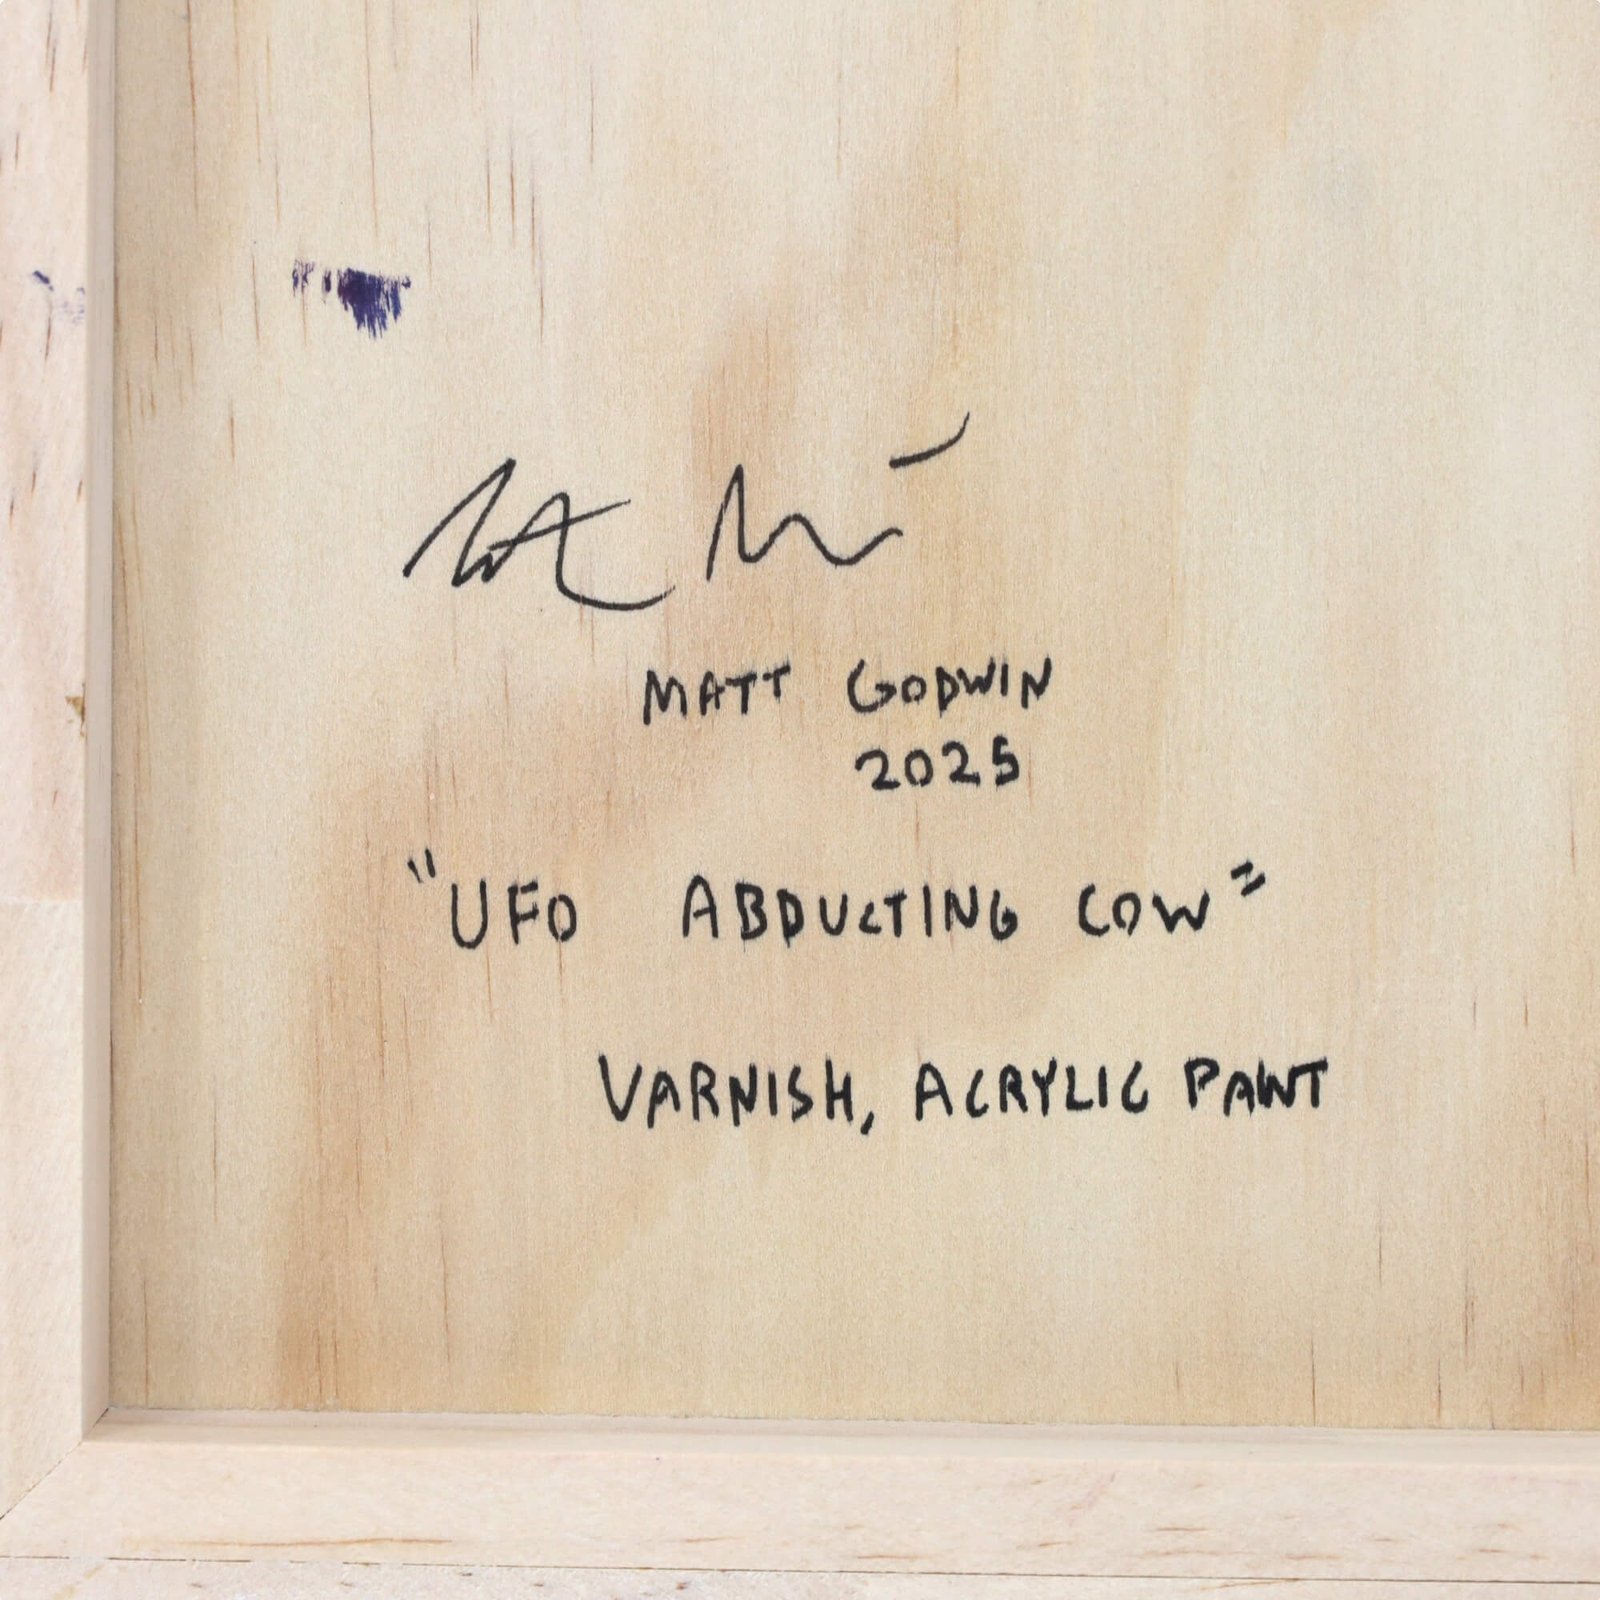 MATT GODWIN
2025
"UFO ABDUCTING COW"
VARNISH, ACRYLIC PAINT